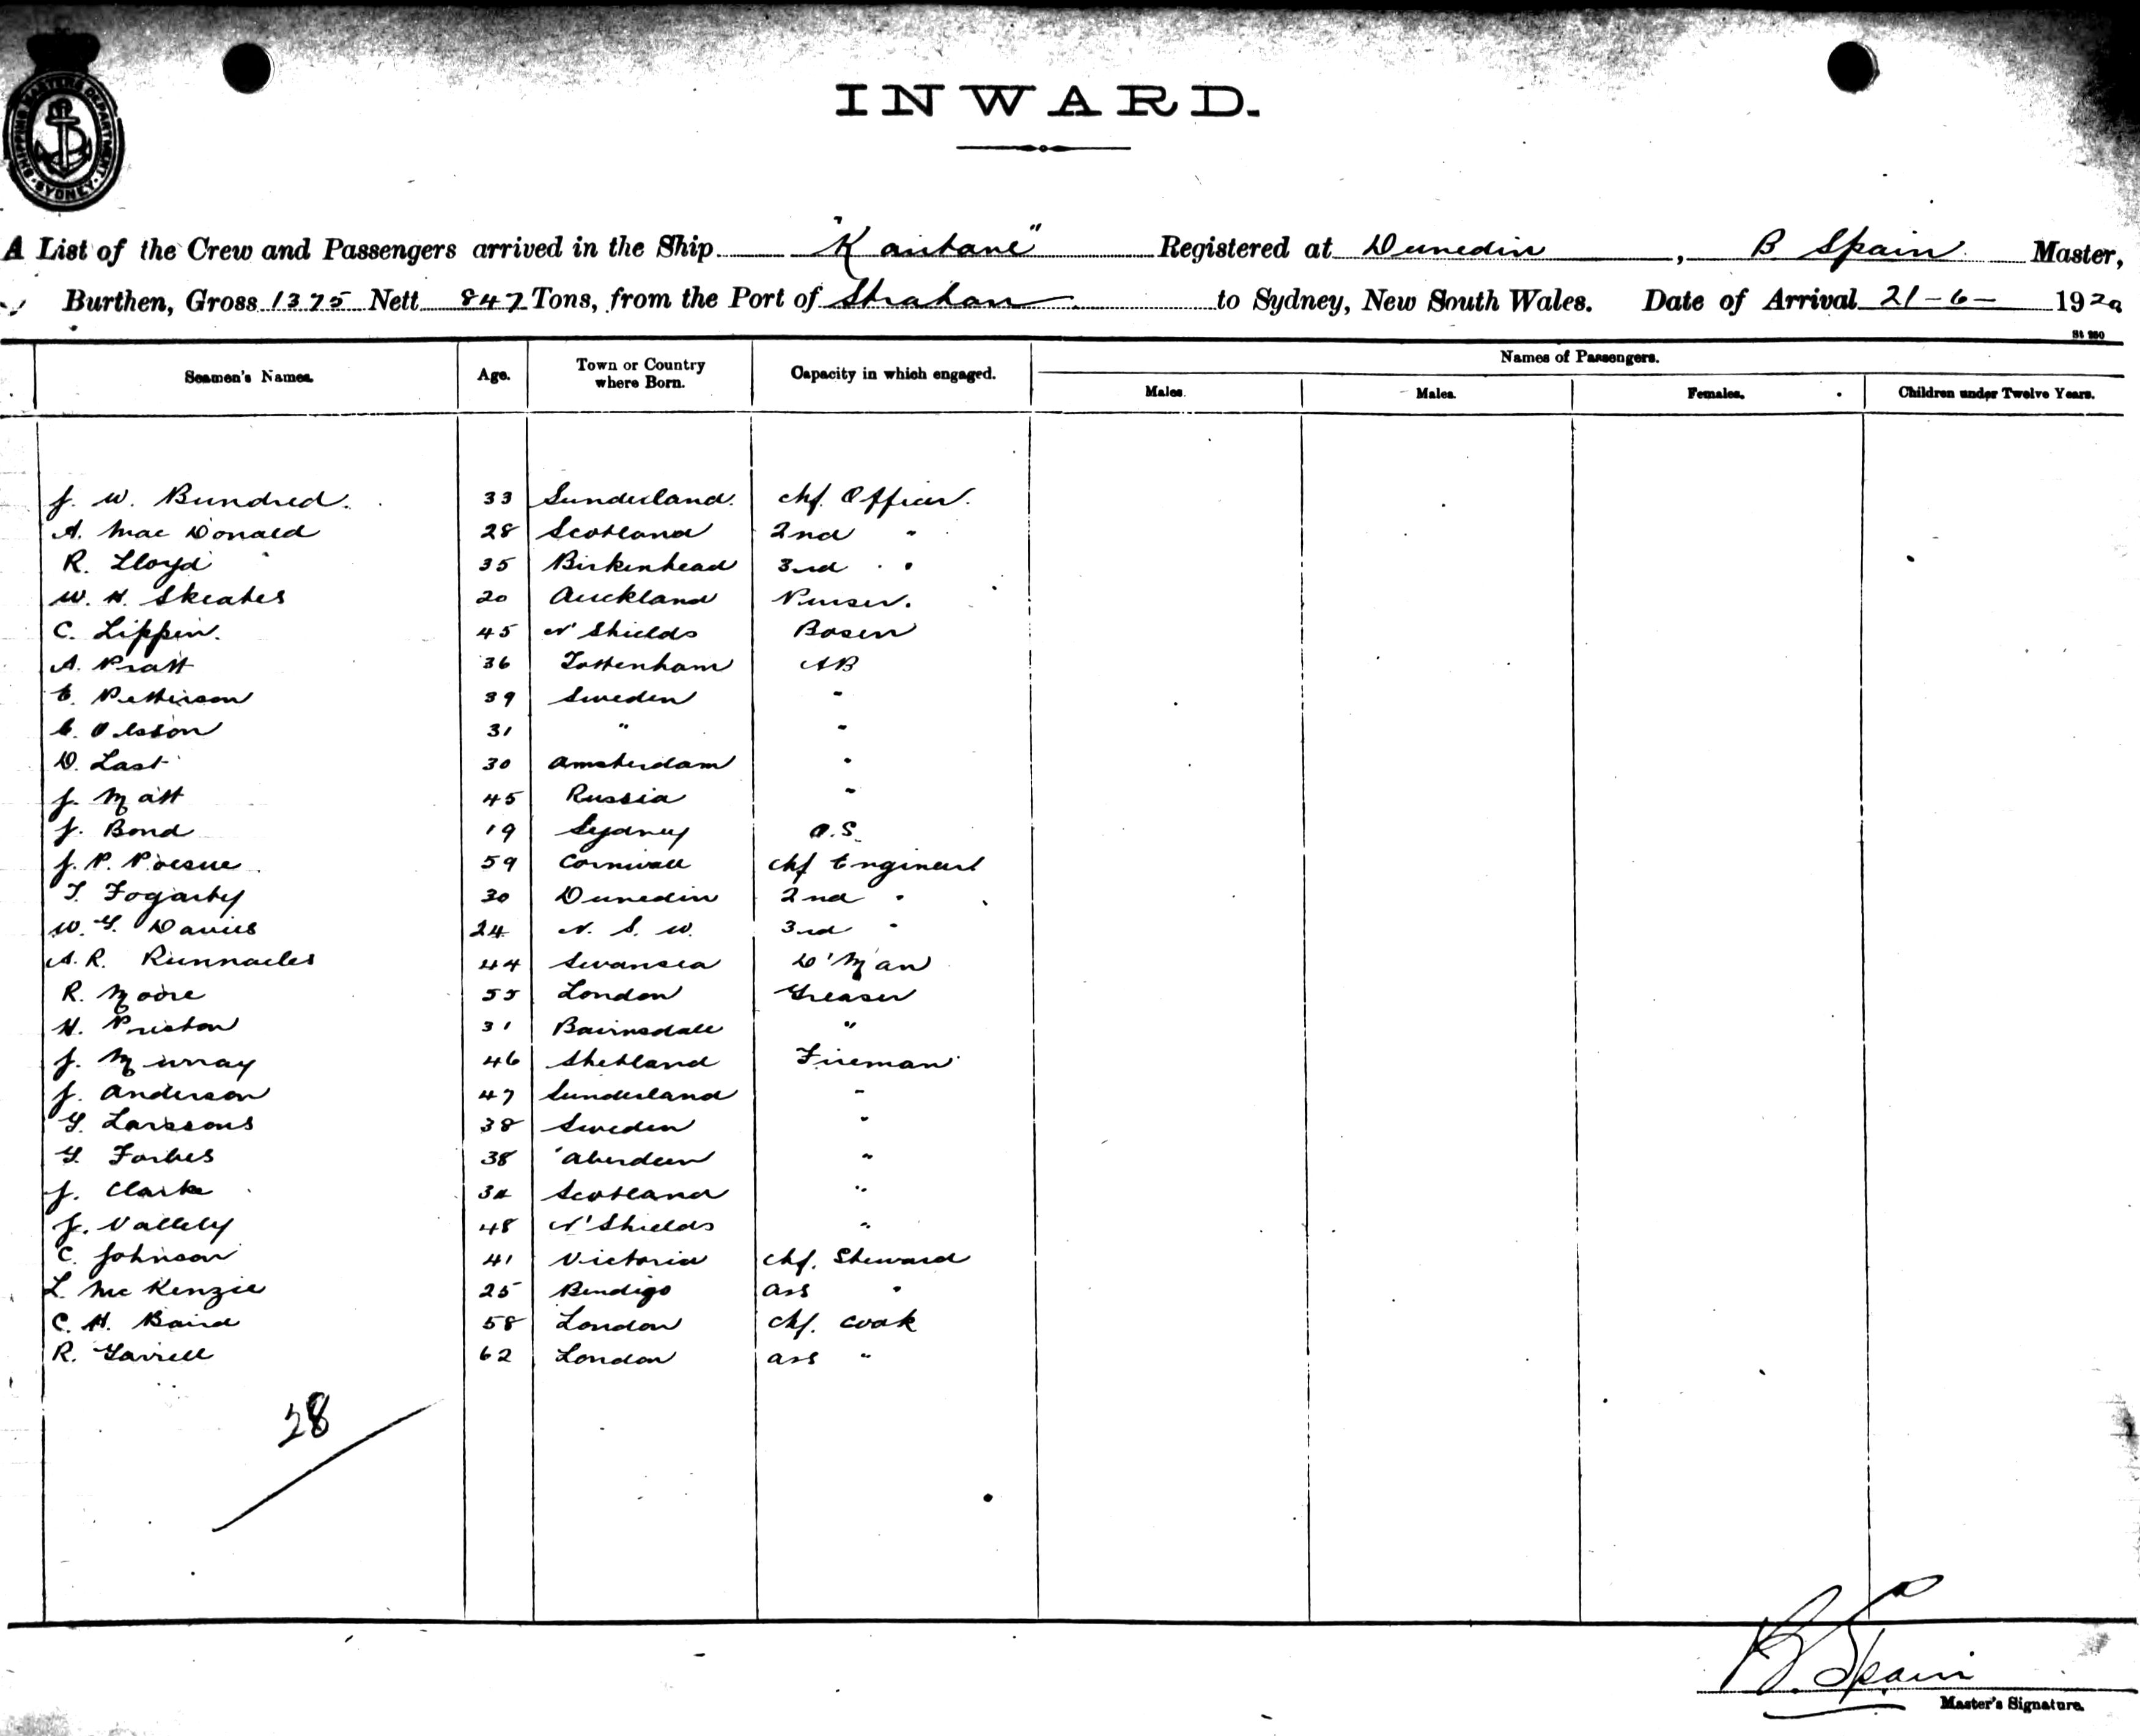 SHIPPING MASTERS DEPARTMENT SYDNEY
INWARD.
A List of the Crew and Passengers arrived in the Ship "Kaitane" Registered at Dunedin, B Spain Master,
Burthen, Gross 1375 Nett 847 Tons, from the Port of Strahan to Sydney, New South Wales. Date of Arrival 21-6- 1920
St 250
Seamen's Names. Age. Town or Country where Born. Capacity in which engaged. Names of Passengers.
Males. Males. Females. Children under Twelve Years.
J. W. Bundred. 33 Sunderland. Chf. Officer.
A. Mac Donald 28 Scotland 2nd "
R. Lloyd 35 Birkenhead 3rd "
W. H. Skeates 20 Auckland Purser.
C. Lippin. 45 N' Shields Bosen
A. Pratt 36 Tottenham AB
E. Petterson 39 Sweden "
C. Olsson 31 " "
D. Last 30 Amsterdam "
J. Matt 45 Russia "
J. Bond 19 Sydney O.S.
J. P. 59 Cornwall Chf Engineer
T. Fogarty 30 Dunedin 2nd "
W. G. Davies 24 N. S. W. 3rd "
A. R. Runnacles 44 Swansea D'Man
R. Moore 55 London Greaser
H. Preston 31 Bairnsdale "
J. Murray 46 Shetland Fireman
J. Anderson 47 Sunderland "
G. Larssons 38 Sweden "
G. Forbes 38 Aberdeen "
J. Clarke Scotland "
J. Vallely 48 N' Shields "
C. Johnson 41 Victoria Chf. Steward
L. McKenzie 25 Bendigo Ass "
C. H. Baird 58 London Chf. Cook
R. Garrell 62 London Ass "
28
B. Spain
Master's Signature.